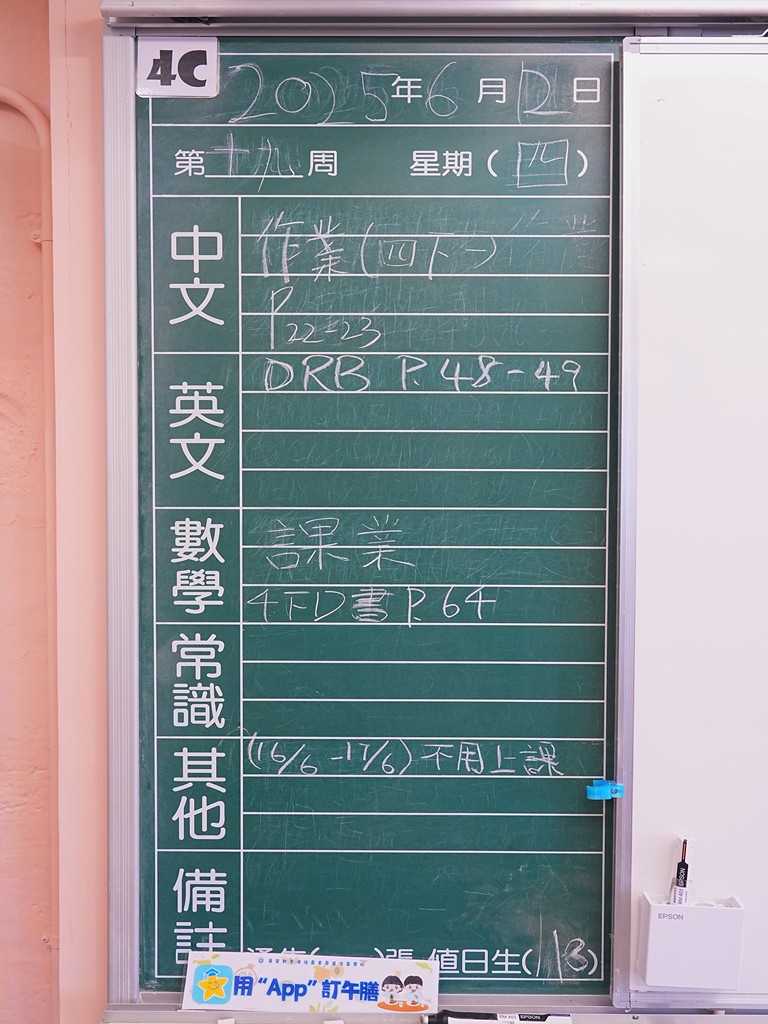 4C
2025年6月12日
第十九周 星期(四)
中文
作業(四下一)
P22-23
英文
DRB P.48-49
數學
課業
4下D書P.64
常識
其他
(16/6-17/6)不用上課
備註
通告( )張 值日生(13)
用“App”訂午膳
EPSON
EPSON